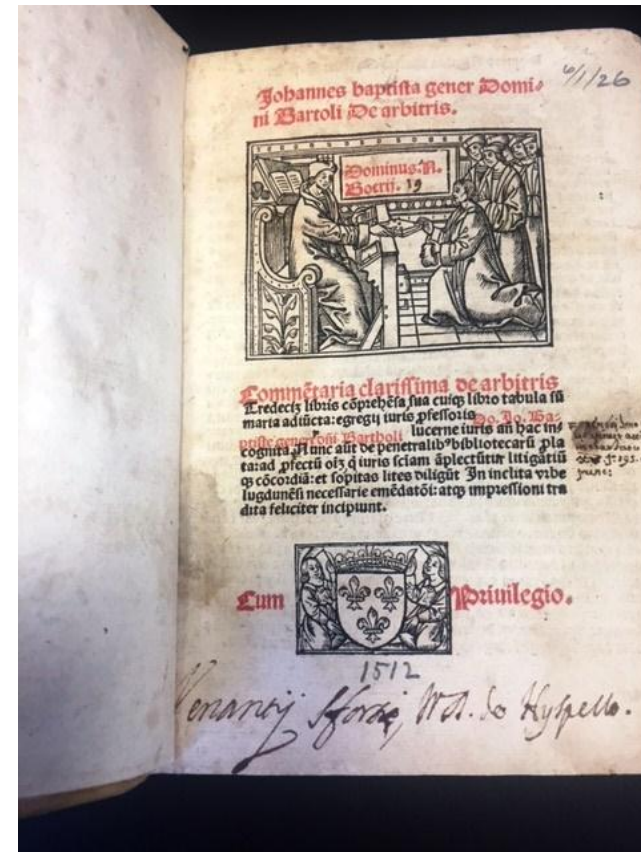 6/1/26
Johannes baptista gener Domi⸗
ni Bartoli De arbitris.
Dominus. N.
Boerij. 19
Commētaria clarissima de arbitris
Tredecim libris cōprehēsa sua cuiqꝫ libro tabula sū
maria adiūcta: egregij iuris ꝓfessoris Do. Jo. Ba⸗
ptiste generosii Bartholi lucerne iuris an̄ hac in⸗
cognita. Nunc aūt de penetralibꝰ bibliotecarū ꝓla
ta: ad ꝓfectū oīꝫ q̇ iuris sciam āplectūtur litigātiū
qꝫ cōcordiā: et sopitas lites diligūt In inclita vrbe
lugdunēsi necessarie emēdatōi: atqꝫ impressioni tra
dita feliciter incipiunt.
Cum Priuilegio.
1512
Venantij Sfortię, de Hyspello.